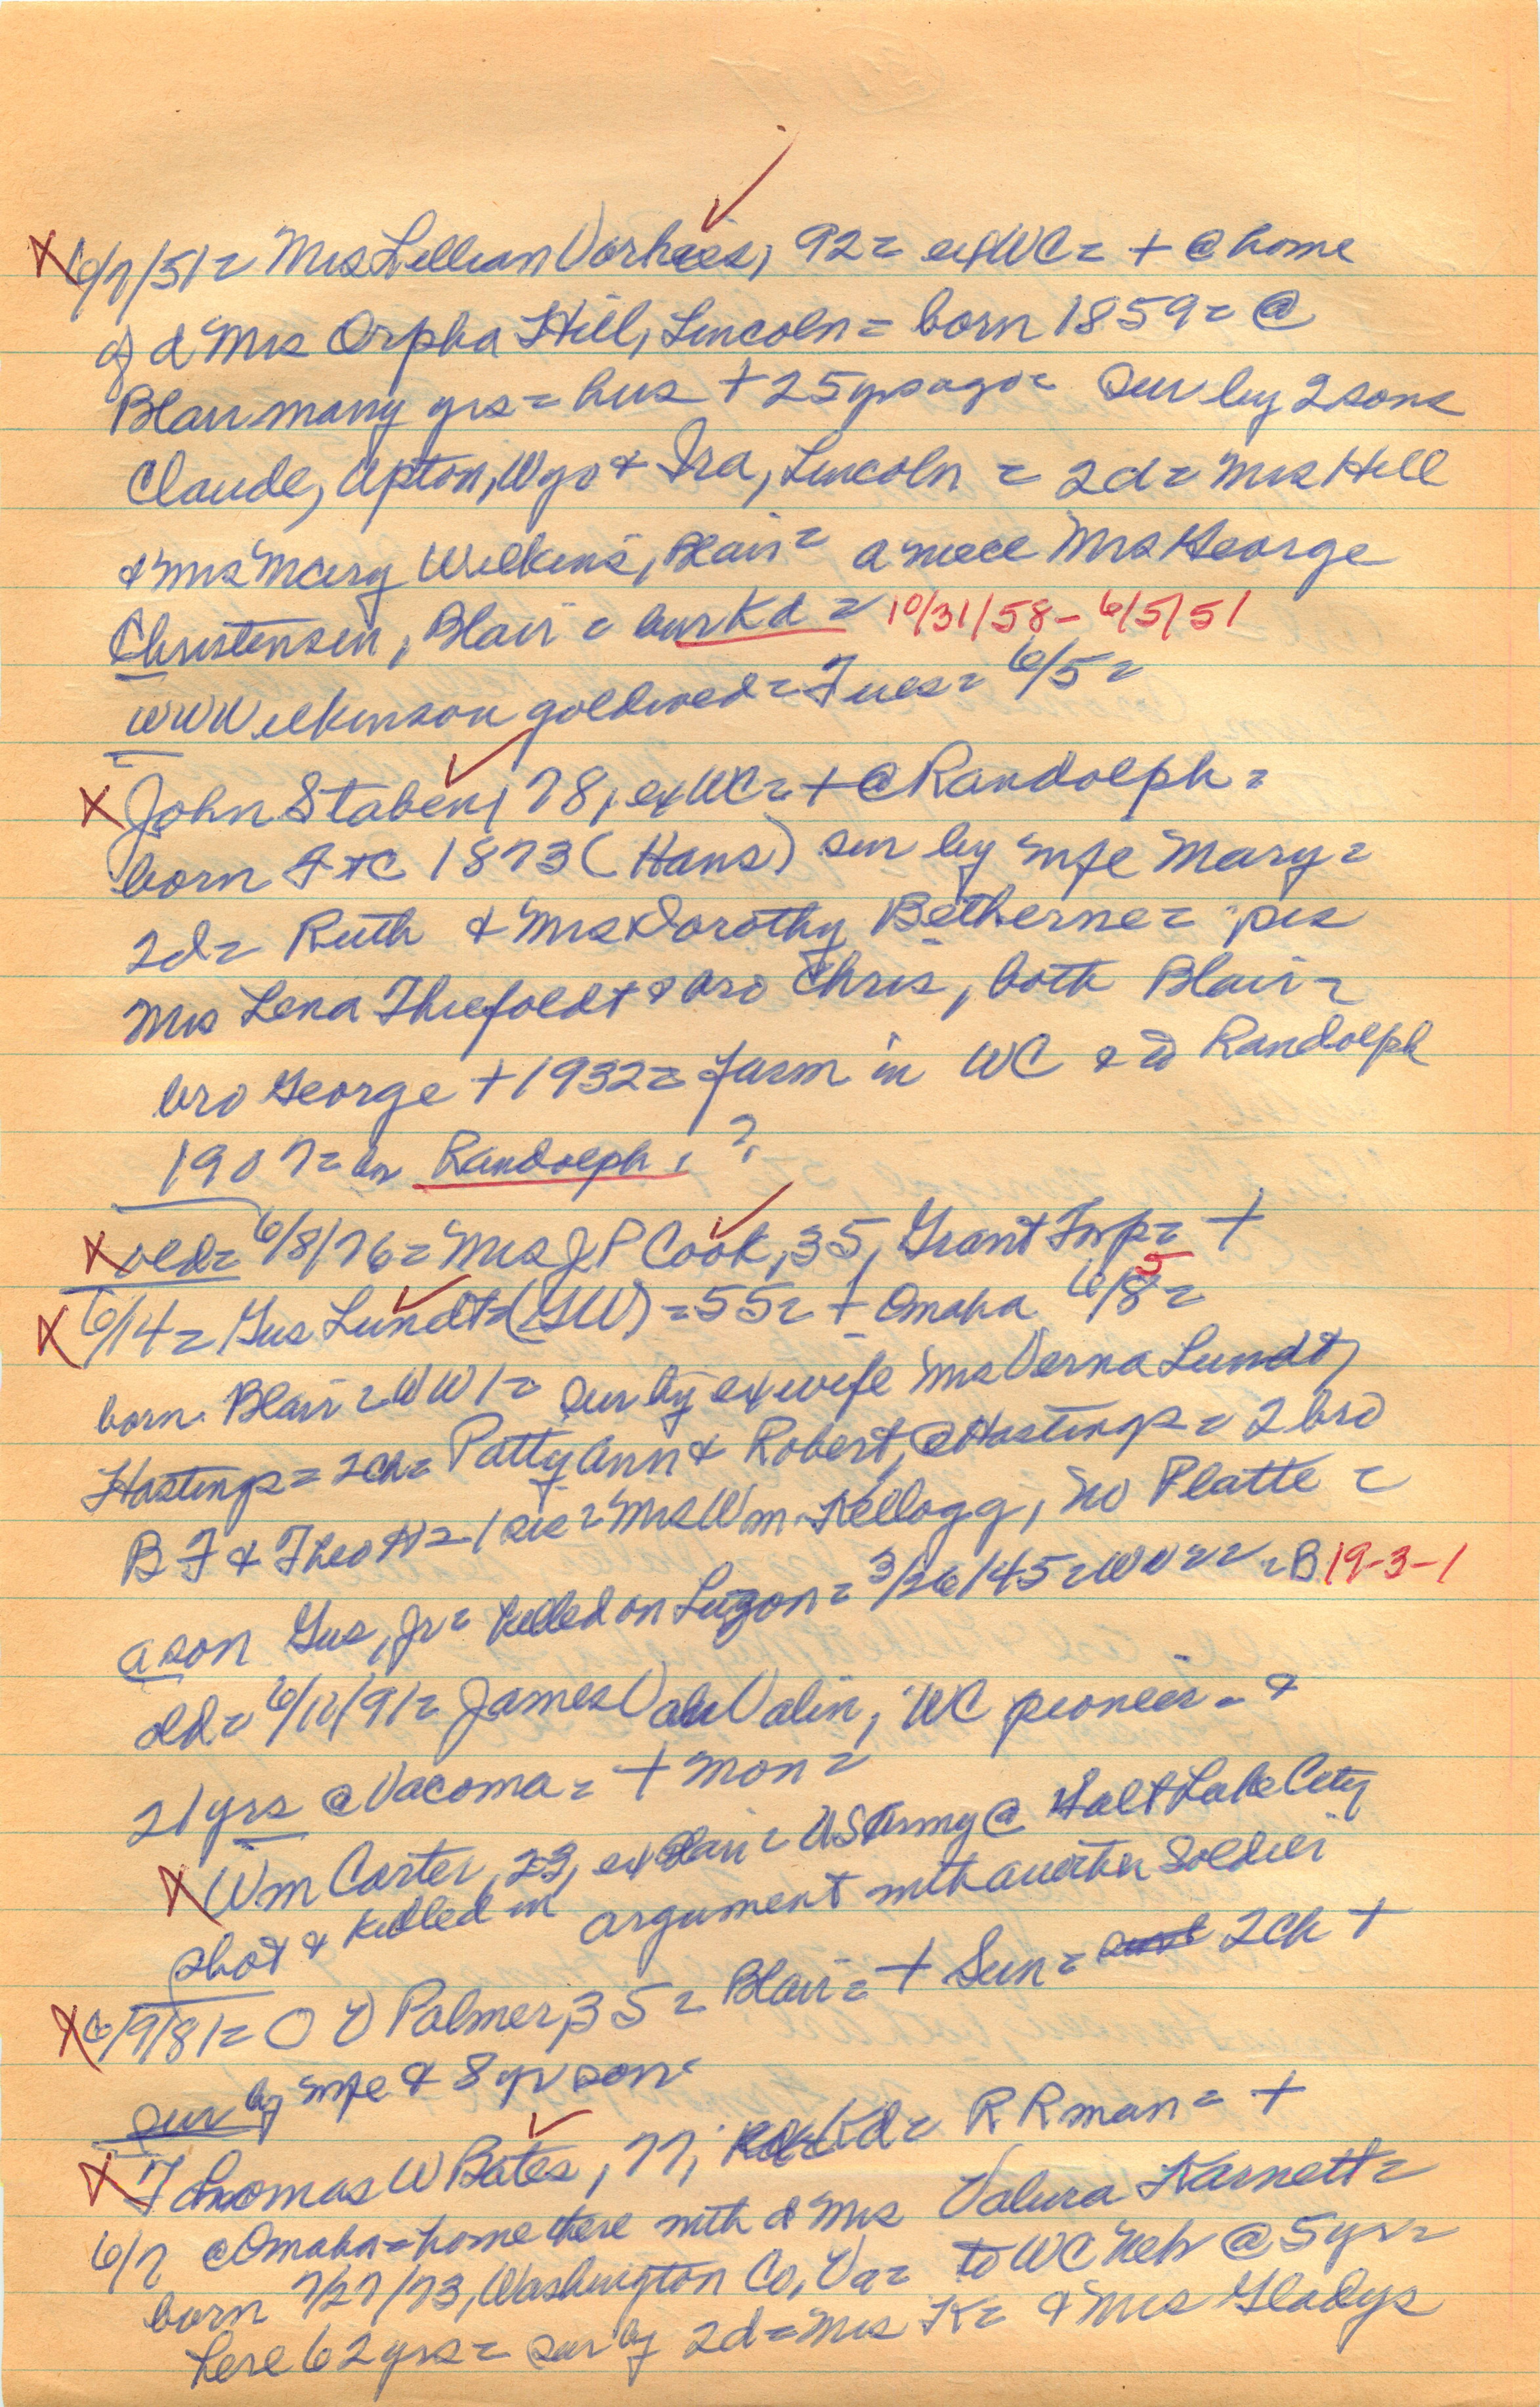 X 6/7/51= Mrs Lillian Vorhees, 92= exWC= + @ home
of d Mrs Orpha Hill, Lincoln= born 1859= @
Blair many yrs= hus + 25 yrs ago= Sur by 2 sons
Claude, Upton, Wyo & Ira, Lincoln = 2d= Mrs Hill
& Mrs Mary Wilkins, Blair= a niece Mrs George
Christensen, Blair= bur Kd = 10/31/58- 6/5/51
WW Wilkinson goldwed= Tues= 6/5=
X John Staben, 78, exWC= + @ Randolph=
born FtC 1873 (Hans) sur by wife Mary=
2d= Ruth & Mrs Dorothy Betherne= sis
Mrs Lena Thiefoldt & bro Chris, both Blair=
bro George + 1932= farm in WC & to Randolph
1907= bur Randolph, ?
X old= 6/8/76= Mrs J P Cook, 35, Grant Twp= +
X 6/14= Gus Lundt= (GW) =55= + Omaha 6/8= 5
born Blair= WW1= Sur by exwife Mrs Verna Lundt,
Hastings= 2ch= Patty Ann & Robert, @ Hastings= 2 bro
B F & Theo H= 1 sis= Mrs Wm Kellogg, No Platte =
a son Gus, Jr= killed on Luzon= 3/26/45= =B 19-3-1
old= 6/11/91= James Van Valin, WC pioneer= &
21yrs @ Vacoma= + Mon=
X Wm Carter, 23, exBlair= US Army @ Salt Lake City
shot & killed in argument with another soldier
X 6/9/81= O V Palmer, 35= Blair= + Sun= 2ch +
sur by wife & 8 yr son=
X Thomas W Bates, 77, Kd= R R man= +
6/7 @ Omaha= home there with d Mrs Valura Karnett=
born 7/27/73, Washington Co, Va= to WC Neb @ 5yr=
here 62yrs= sur by 2d= Mrs K= & Mrs Gladys